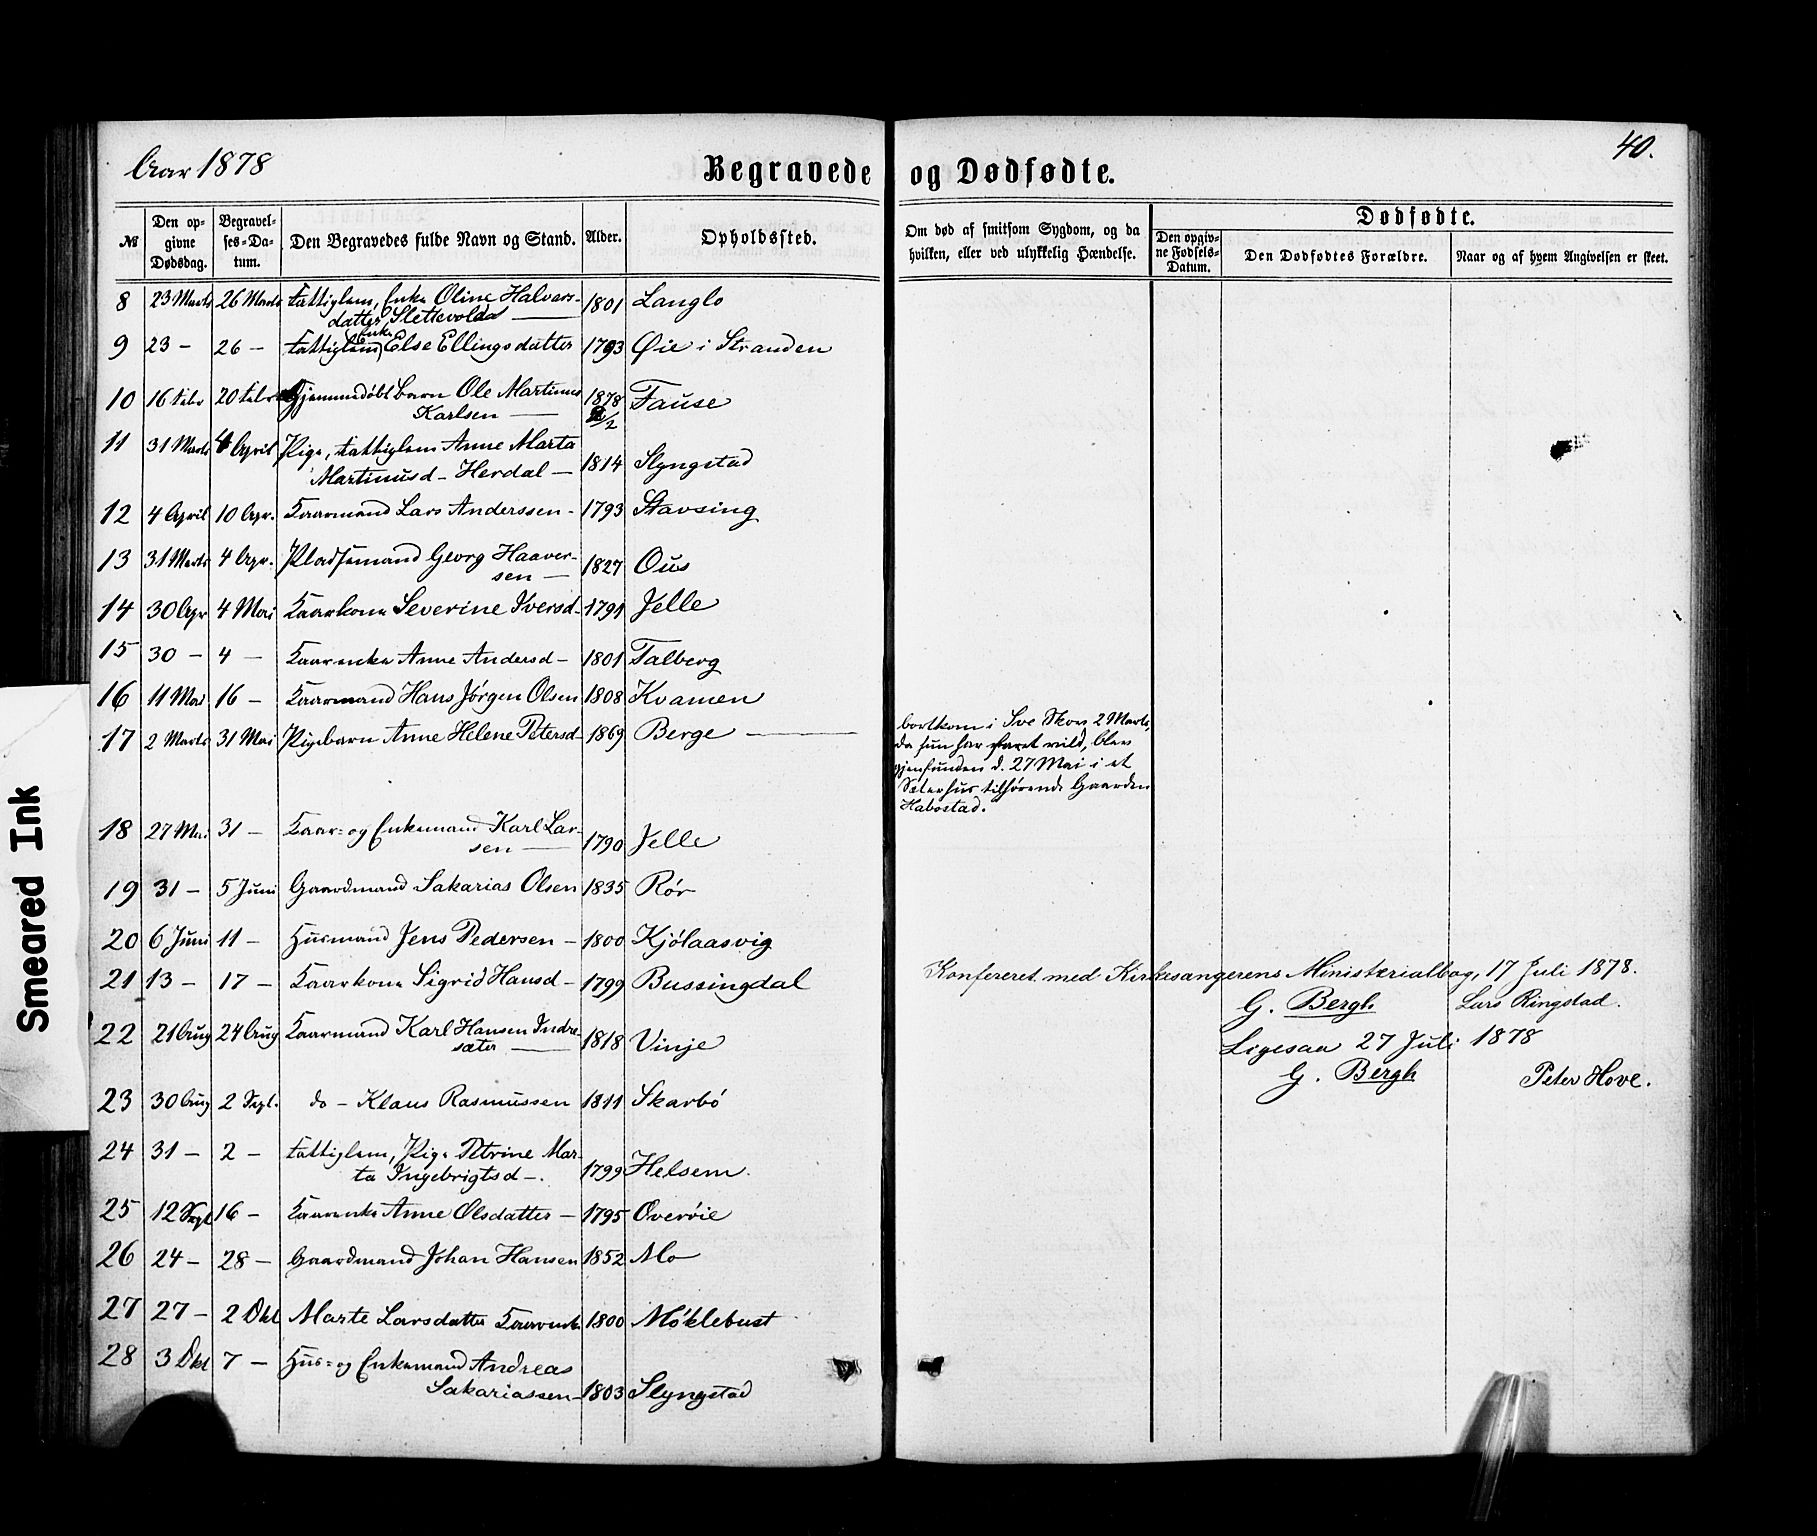 Aar 1878
Begravede og Dødfødte.
40.
№
Den opgivne Dødsdag.
Begravelses-Datum.
Den Begravedes fulde Navn og Stand.
Alder.
Opholdssted.
Om død af smitsom Sygdom, og da hvilken, eller ved ulykkelig Hændelse.
Dødfødte.
Den opgivne Fødsels-Datum.
Den Dødfødtes Forældre.
Naar og af hvem Angivelsen er skeet.
8 23 Marts 26 Marts Fattiglem, Enke Oline Halvors-
datter Slettevold — 1801 Langlo
9 23 — 26 — Fattiglem Enke Else Ellingsdatter 1793 Øie i Stranden
10 16 Febr 20 Febr Hjemmedøbt Barn Ole Martinus
Karlsen — 1878 /2 Fause
11 31 Marts 4 April Pige, Fattiglem Anne Marta
Martinusd — Herdal — 1814 Slyngstad
12 4 April 10 Apr. Kaarmand Lars Anderssen — 1793 Stavsing
13 31 Marts 4 Apr. Pladsemand Georg Haaver-
sen — 1827 Ous
14 30 Apr 4 Mai Kaarkone Severine Iversd — 1791 Jelle
15 30 — 4 — Kaarenke Anne Andersd — 1801 Talberg
16 11 Mai 16 — Kaarmand Hans Jørgen Olsen 1808 Kvamen
17 2 Marts 31 Mai Pigebarn Anne Helene Petersd — 1869 Berge —
bortkom i Sve Skov 2 Marts,
da hun har faret vild, blev
gjenfunden d. 27 Mai i et
Sæterhus tilhørende Gaarden
Habostad.
18 27 Mai 31 — Kaar- og Enkemand Karl Lar-
sen — 1790 Jelle
19 31 — 5 Juni Gaardmand Sakarias Olsen 1835 Rör
20 6 Juni 11 — Husmand Jens Pedersen — 1800 Kjölaasvig
21 13 — 17 — Kaarkone Sigrid Hansd — 1799 Bussingdal
Konfereret med Kirkesangerens Ministerialbog, 17 Juli 1878.
G. Bergh Lars Ringstad.
22 21 Aug 24 Aug Kaarmand Karl Hansen Indre-
sæter — 1818 Vinje
Ligesaa 27 Juli 1878
G. Bergh Peter Hove.
23 30 Aug 2 Sept. do — Klaus Rasmussen 1811 Skarbö
24 31 — 2 — Fattiglem, Pige Petrine Mar-
ta Ingebrigtsd —. 1799 Helsem.
25 12 Sept 16 — Kaarenke Anne Olsdatter — 1795 Overöie
26 24 — 28 — Gaardmand Johan Hansen 1852 Mo
27 27 — 2 Okt Marte Larsdatter Kaarenke 1800 Möklebust
28 3 Okt 7 — Hus- og Enkemand Andreas
Sakariassen — 1803 Slyngstad
Smeared Ink